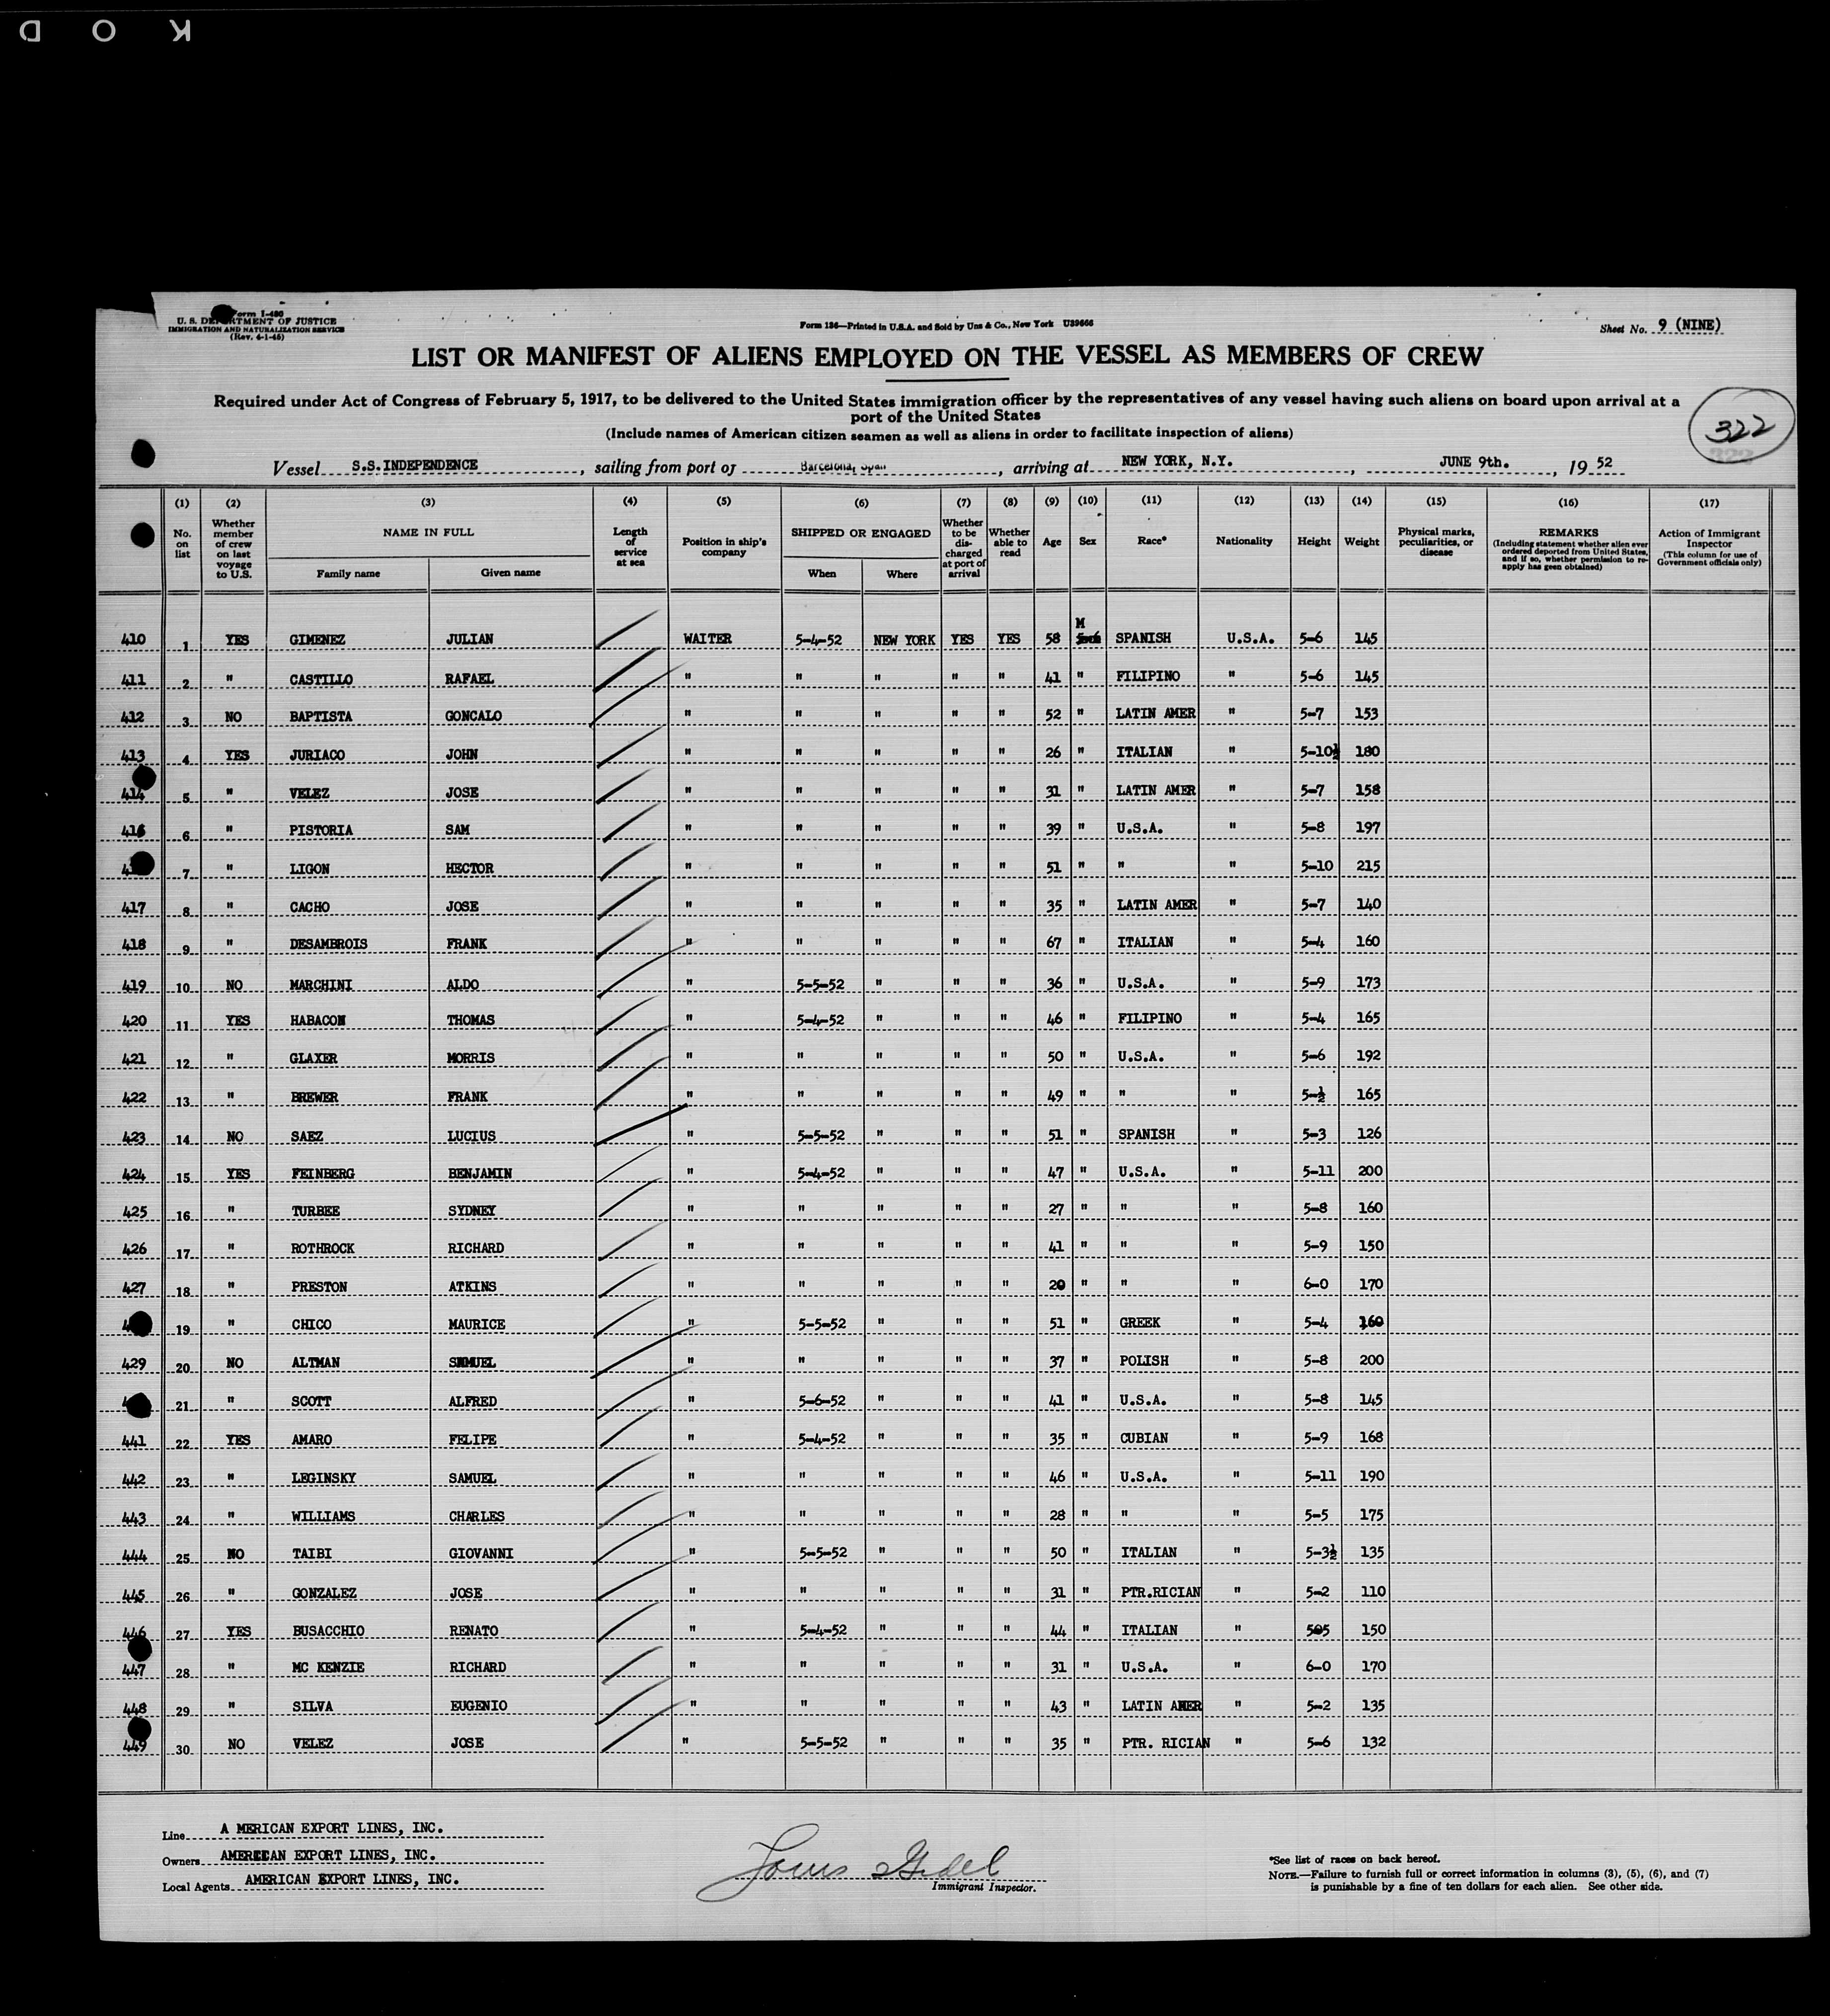 K O D
Form I-480
U. S. DEPARTMENT OF JUSTICE
IMMIGRATION AND NATURALIZATION SERVICE
(Rev. 4-1-45)
Form 136—Printed in U.S.A. and Sold by Unz & Co., New York U39666
Sheet No. 9 (NINE)
LIST OR MANIFEST OF ALIENS EMPLOYED ON THE VESSEL AS MEMBERS OF CREW
Required under Act of Congress of February 5, 1917, to be delivered to the United States immigration officer by the representatives of any vessel having such aliens on board upon arrival at a
port of the United States
(Include names of American citizen seamen as well as aliens in order to facilitate inspection of aliens)
322
Vessel S.S.INDEPENDENCE, sailing from port of Barcelona, Spain, arriving at NEW YORK, N.Y., JUNE 9th., 19 52
(1) (2) (3) (4) (5) (6) (7) (8) (9) (10) (11) (12) (13) (14) (15) (16) (17)
No. on list
Whether member of crew on last voyage to U.S.
NAME IN FULL
Family name
Given name
Length of service at sea
Position in ship's company
SHIPPED OR ENGAGED
When
Where
Whether to be discharged at port of arrival
Whether able to read
Age
Sex
Race*
Nationality
Height
Weight
Physical marks, peculiarities, or disease
REMARKS
(Including statement whether alien ever ordered deported from United States, and if so, whether permission to re-apply has been obtained)
Action of Immigrant Inspector
(This column for use of Government officials only)
410 1 YES GIMENEZ JULIAN WAITER 5-4-52 NEW YORK YES YES 58 M SPANISH U.S.A. 5-6 145
411 2 " CASTILLO RAFAEL " " " " " 41 " FILIPINO " 5-6 145
412 3 NO BAPTISTA GONCALO " " " " " 52 " LATIN AMER " 5-7 153
413 4 YES JURIACO JOHN " " " " " 26 " ITALIAN " 5-10½ 180
414 5 " VELEZ JOSE " " " " " 31 " LATIN AMER " 5-7 158
416 6 " PISTORIA SAM " " " " " 39 " U.S.A. " 5-8 197
7 " LIGON HECTOR " " " " " 51 " " " 5-10 215
417 8 " CACHO JOSE " " " " " 35 " LATIN AMER " 5-7 140
418 9 " DESAMBROIS FRANK " " " " " 67 " ITALIAN " 5-4 160
419 10 NO MARCHINI ALDO " 5-5-52 " " " 36 " U.S.A. " 5-9 173
420 11 YES HABACON THOMAS " 5-4-52 " " " 46 " FILIPINO " 5-4 165
421 12 " GLAXER MORRIS " " " " " 50 " U.S.A. " 5-6 192
422 13 " BREWER FRANK " " " " " 49 " " " 5-½ 165
423 14 NO SAEZ LUCIUS " 5-5-52 " " " 51 " SPANISH " 5-3 126
424 15 YES FEINBERG BENJAMIN " 5-4-52 " " " 47 " U.S.A. " 5-11 200
425 16 " TURBEE SYDNEY " " " " " 27 " " " 5-8 160
426 17 " ROTHROCK RICHARD " " " " " 41 " " " 5-9 150
427 18 " PRESTON ATKINS " " " " " 20 " " " 6-0 170
19 " CHICO MAURICE " 5-5-52 " " " 51 " GREEK " 5-4 160
429 20 NO ALTMAN SAMUEL " " " " " 37 " POLISH " 5-8 200
21 " SCOTT ALFRED " 5-6-52 " " " 41 " U.S.A. " 5-8 145
441 22 YES AMARO FELIPE " 5-4-52 " " " 35 " CUBIAN " 5-9 168
442 23 " LEGINSKY SAMUEL " " " " " 46 " U.S.A. " 5-11 190
443 24 " WILLIAMS CHARLES " " " " " 28 " " " 5-5 175
444 25 NO TAIBI GIOVANNI " 5-5-52 " " " 50 " ITALIAN " 5-3½ 135
445 26 " GONZALEZ JOSE " " " " " 31 " PTR.RICIAN " 5-2 110
446 27 YES BUSACCHIO RENATO " 5-4-52 " " " 44 " ITALIAN " 505 150
447 28 " MC KENZIE RICHARD " " " " " 31 " U.S.A. " 6-0 170
448 29 " SILVA EUGENIO " " " " " 43 " LATIN AMER " 5-2 135
449 30 NO VELEZ JOSE " 5-5-52 " " " 35 " PTR. RICIAN " 5-6 132
Line A MERICAN EXPORT LINES, INC.
Owners AMERICAN EXPORT LINES, INC.
Local Agents AMERICAN EXPORT LINES, INC.
Louis
Immigrant Inspector.
*See list of races on back hereof.
NOTE.—Failure to furnish full or correct information in columns (3), (5), (6), and (7)
is punishable by a fine of ten dollars for each alien. See other side.